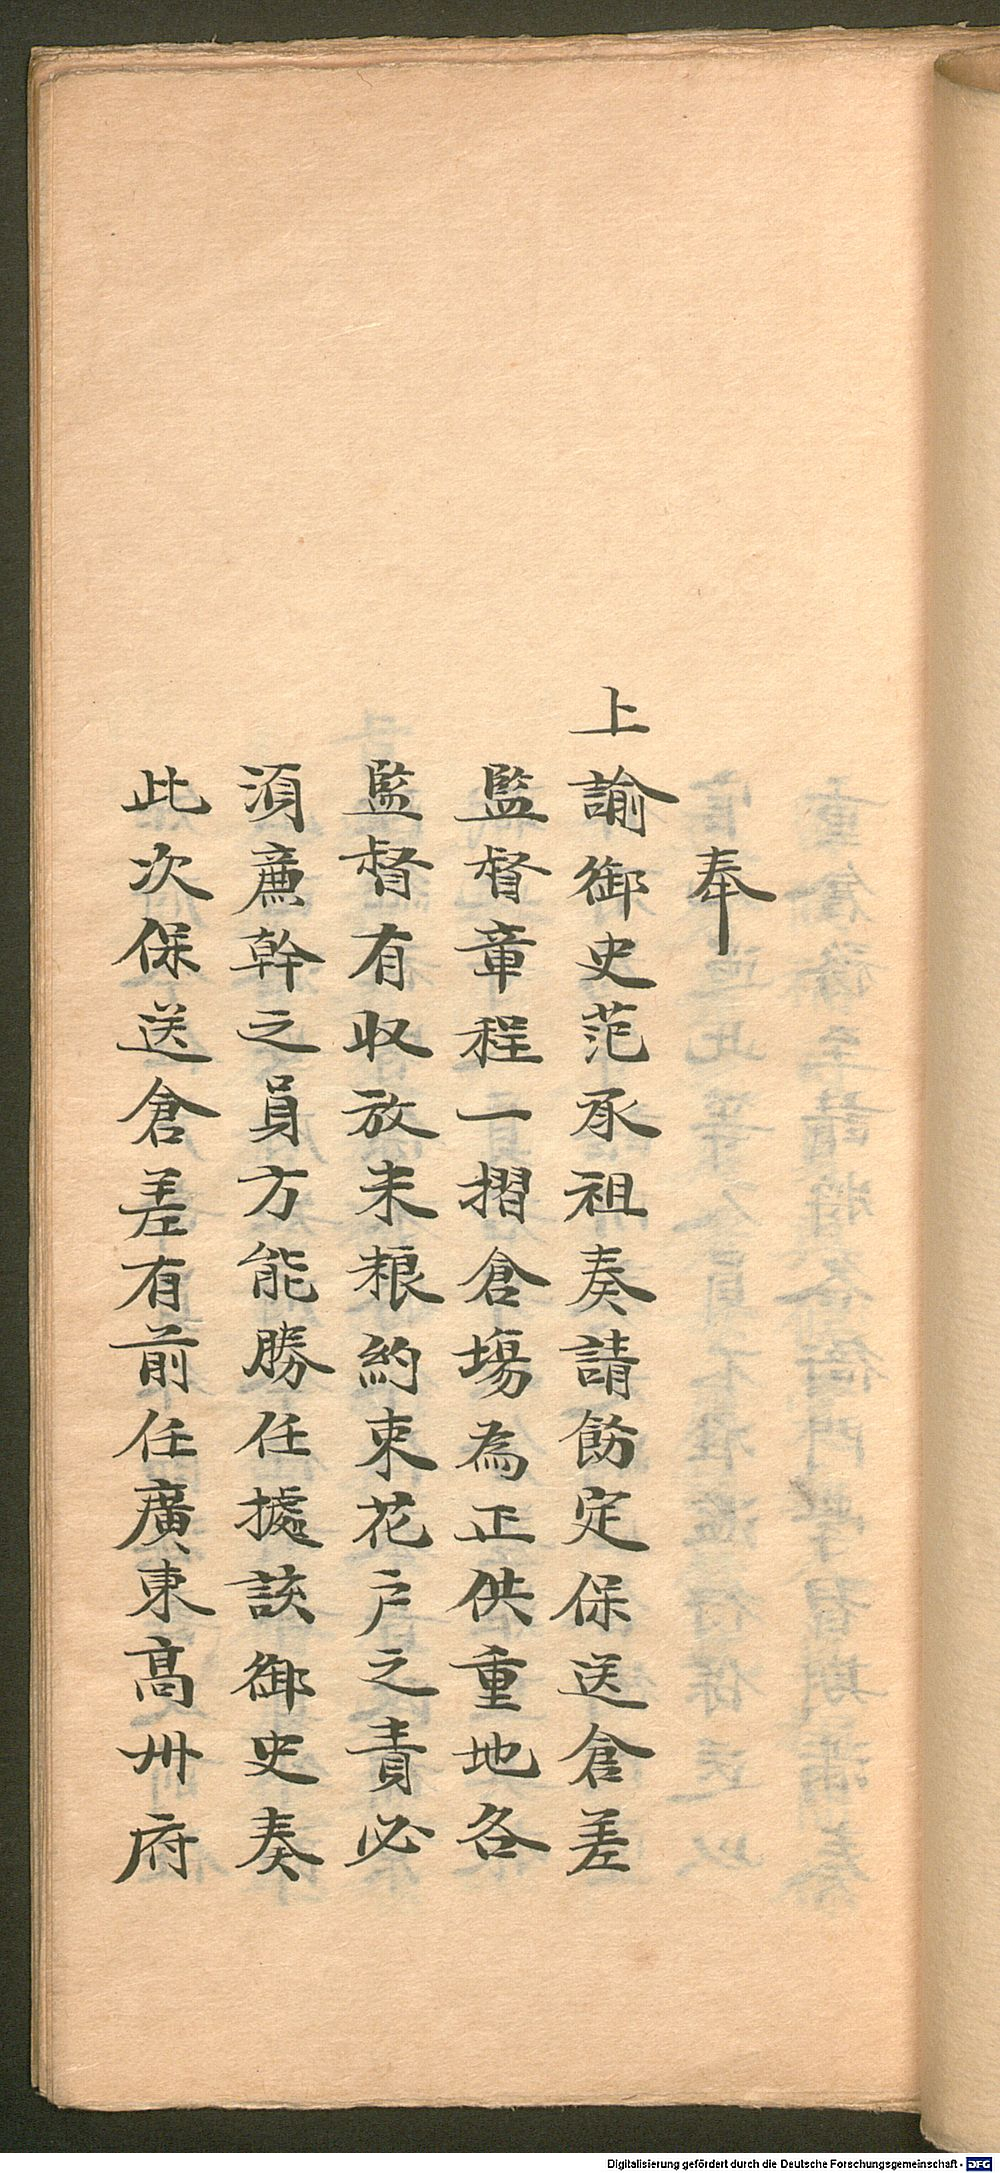 奉
上諭御史范承祖奏請飭定保送倉差
監督章程一摺倉塲為正供重地各
監督有収放米粮約束花戶之責必
須廉幹之員方能勝任據該御史奏
此次保送倉差有前任廣東高州府
Digitalisierung gefördert durch die Deutsche Forschungsgemeinschaft - DFG